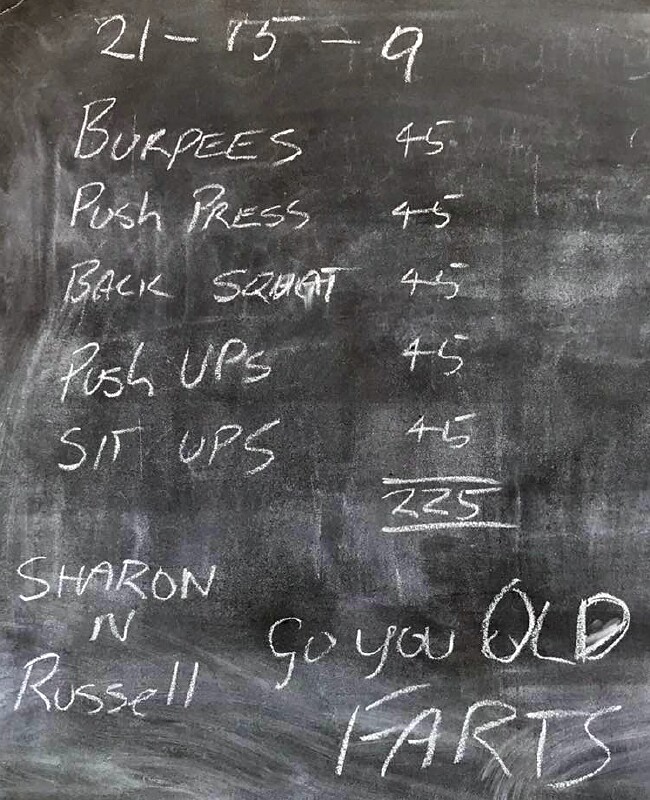 21 - 15 - 9
BURPEES 45
Push PRESS 45
BACK SQUAT 45
Push UPS 45
SIT UPS 45
225
SHARON
N
Russell
Go you OLD
FARTS